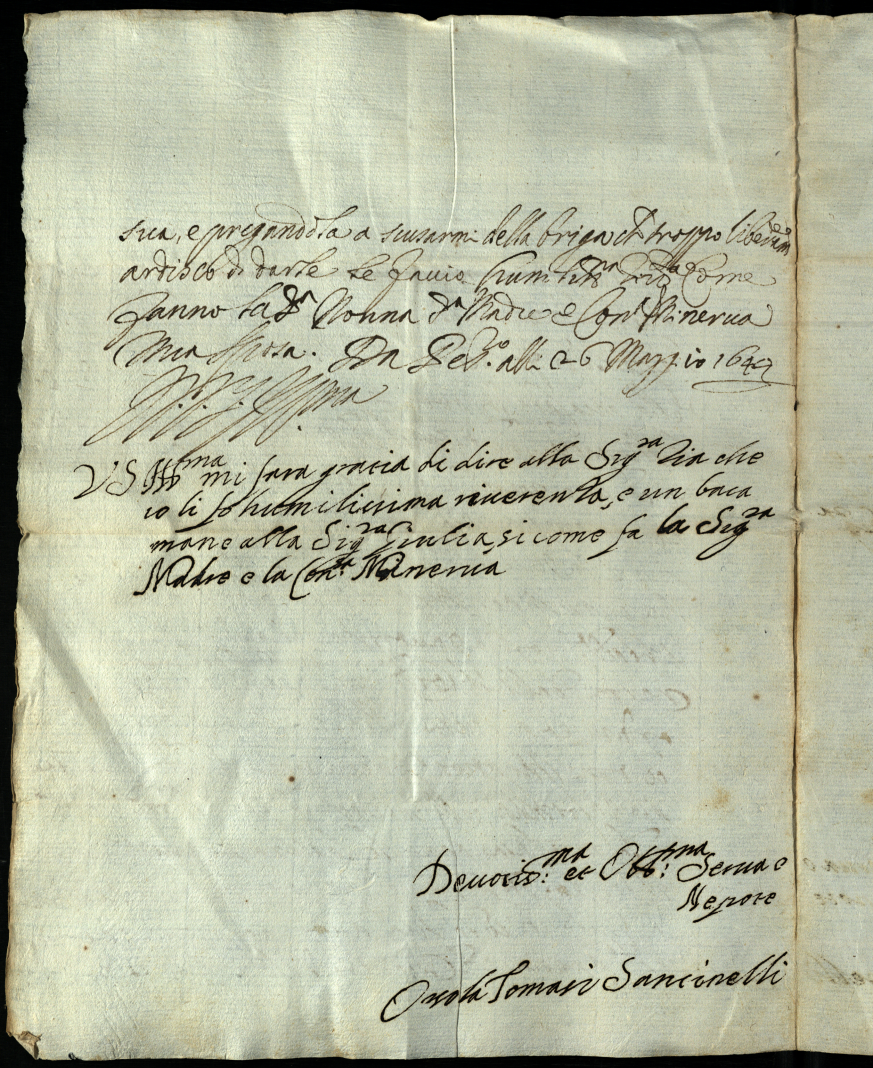 sua, e pregandola a scusarmi della briga ch troppo liberam.te
ardisco di darle le faccio humiliss.ma come
fanno la S.ra Nonna S.ra Madre e Con.ra Minerua
mia sposa. Da alli 26 Maggio 1649
VS Ill.ma mi fara gratia di dire alla Sig.ra Zia che
io li fo humilissima riuerenza, e un bacia
mane alla Sig.ra Giulia, si come fa la Sig.ra
Madre e la Con.ra Minerua
Deuotis.ma et Obb.ma Serua e
Nepote
Orsola Tomasi Sancinelli